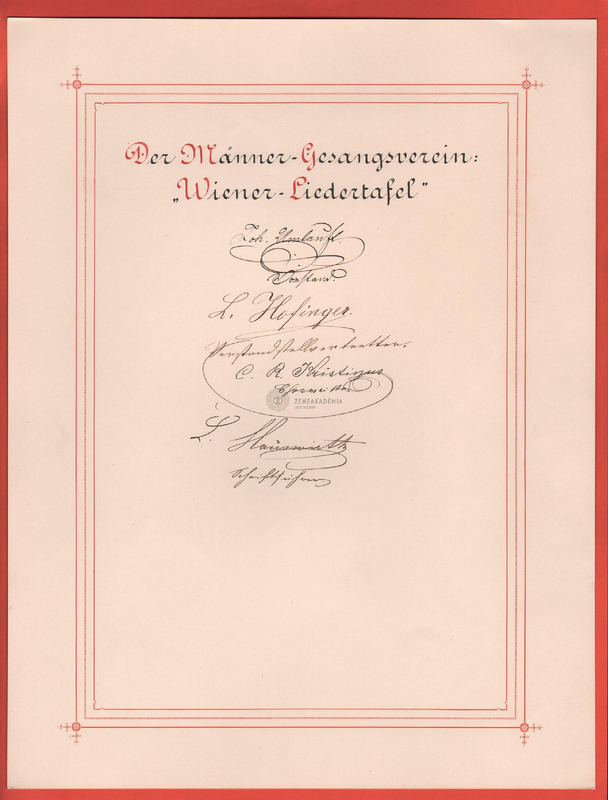 Der Männer-Gesangsverein:
„Wiener-Liedertafel"
Joh. Umlauft.
Vorstand.
L. Hofinger.
Vorstandstellvertretter.
C. R. Kristinus
Chormeister
ZENEAKADÉMIA
L.
Schriftführer